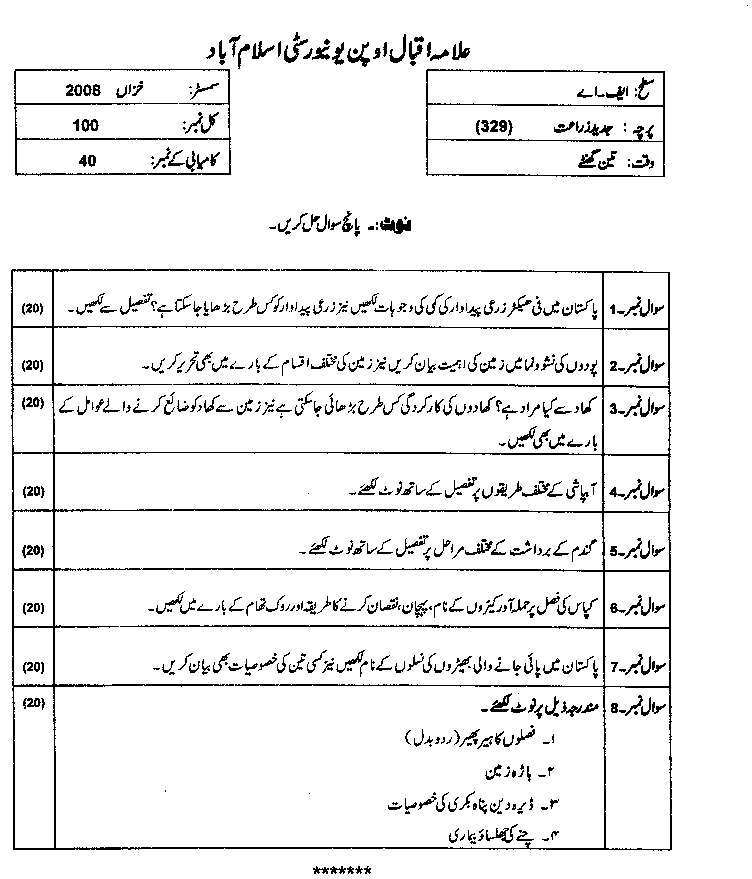 علامہ اقبال اوپن یونیورسٹی اسلام آباد
سطح: ایف۔اے
پرچہ: جدید زراعت (329)
وقت: تین گھنٹے
سمسٹر: خزاں 2008
کل نمبر: 100
کامیابی کے نمبر: 40
نوٹ:۔ پانچ سوال حل کریں۔
سوال نمبر۔1 پاکستان میں فی ہیکٹر زرعی پیداوار کی کمی کی وجوہات لکھیں نیز زرعی پیداوار کو کس طرح بڑھایا جا سکتا ہے؟ تفصیل سے لکھیں۔ (20)
سوال نمبر۔2 پودوں کی نشوونما میں زمین کی اہمیت بیان کریں نیز زمین کی مختلف اقسام کے بارے میں بھی تحریر کریں۔ (20)
سوال نمبر۔3 کھاد سے کیا مراد ہے؟ کھادوں کی کارکردگی کس طرح بڑھائی جا سکتی ہے نیز زمین سے کھاد کو ضائع کرنے والے عوامل کے (20)
بارے میں بھی لکھیں۔
سوال نمبر۔4 آبپاشی کے مختلف طریقوں پر تفصیل کے ساتھ نوٹ لکھئے۔ (20)
سوال نمبر۔5 گندم کے برداشت کے مختلف مراحل پر تفصیل کے ساتھ نوٹ لکھئے۔ (20)
سوال نمبر۔6 کپاس کی فصل پر حملہ آور کیڑوں کے نام، پہچان، نقصان کرنے کا طریقہ اور روک تھام کے بارے میں لکھیں۔ (20)
سوال نمبر۔7 پاکستان میں پائی جانے والی بھیڑوں کی نسلوں کے نام لکھیں نیز کسی تین کی خصوصیات بھی بیان کریں۔ (20)
سوال نمبر۔8 مندرجہ ذیل پر نوٹ لکھئے۔ (20)
۱۔ فصلوں کا ہیر پھیر (ردوبدل)
۲۔ باڑہ زمین
۳۔ ڈیرہ دین پناہ بکری کی خصوصیات
۴۔ چنے کی جھلساؤ بیماری
*******